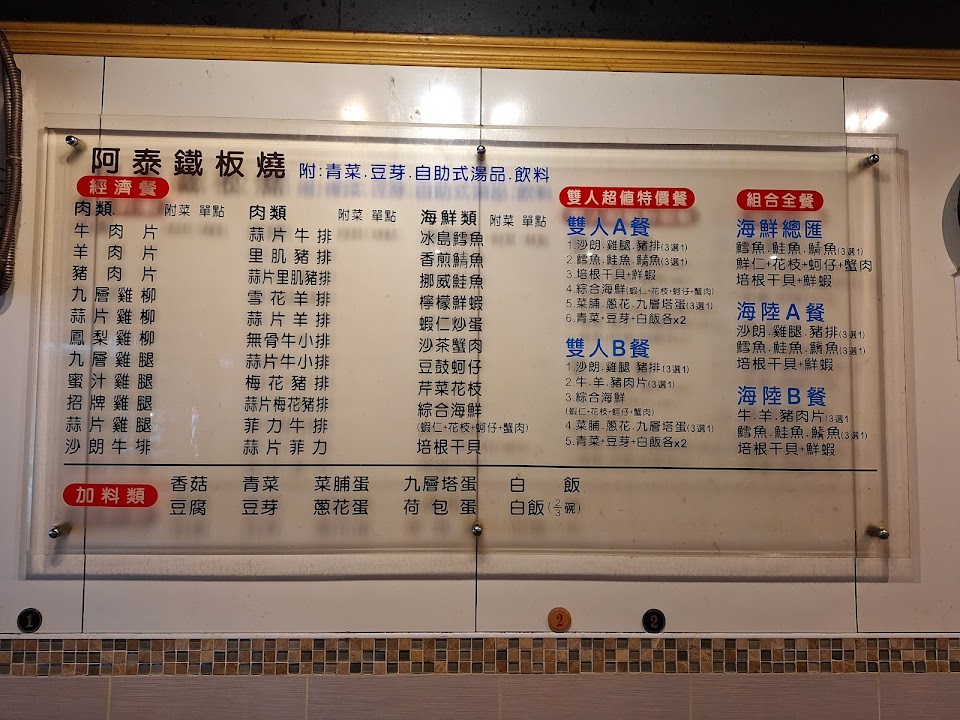 阿泰鐵板燒 附:青菜.豆芽.自助式湯品.飲料
經濟餐
肉類 附菜 單點
牛肉片
羊肉片
豬肉片
九層雞柳
蒜片雞柳
鳳梨雞柳
九層雞腿
蜜汁雞腿
招牌雞腿
蒜片雞腿
沙朗牛排
肉類 附菜 單點
蒜片牛排
里肌豬排
蒜片里肌豬排
雪花羊排
蒜片羊排
無骨牛小排
蒜片牛小排
梅花豬排
蒜片梅花豬排
菲力牛排
蒜片菲力
海鮮類 附菜 單點
冰島鱈魚
香煎鯖魚
挪威鮭魚
檸檬鮮蝦
蝦仁炒蛋
沙茶蟹肉
豆鼓蚵仔
芹菜花枝
綜合海鮮
(蝦仁+花枝+蚵仔+蟹肉)
培根干貝
雙人超值特價餐
雙人A餐
1.沙朗.雞腿.豬排(3選1)
2.鱈魚.鮭魚.鯖魚(3選1)
3.培根干貝+鮮蝦
4.綜合海鮮(蝦仁+花枝+蚵仔+蟹肉)
5.菜脯.蔥花.九層塔蛋(3選1)
6.青菜+豆芽+白飯各x2
雙人B餐
1.沙朗.雞腿 豬排(3選1)
2.牛.羊.豬肉片(3選1)
3.綜合海鮮
(蝦仁+花枝+蚵仔+蟹肉)
4.菜脯.蔥花.九層塔蛋(3選1)
5.青菜+豆芽+白飯各x2
組合全餐
海鮮總匯
鱈魚.鮭魚.鯖魚(3選1)
鮮仁+花枝+蚵仔+蟹肉
培根干貝+鮮蝦
海陸A餐
沙朗.雞腿.豬排(3選1)
鱈魚.鮭魚.鯖魚(3選1)
培根干貝+鮮蝦
海陸B餐
牛.羊.豬肉片(3選1
鱈魚.鮭魚.鯖魚(3選1)
培根干貝+鮮蝦
加料類
香菇 青菜 菜脯蛋 九層塔蛋 白飯
豆腐 豆芽 蔥花蛋 荷包蛋 白飯(2/3碗)
1 2 2